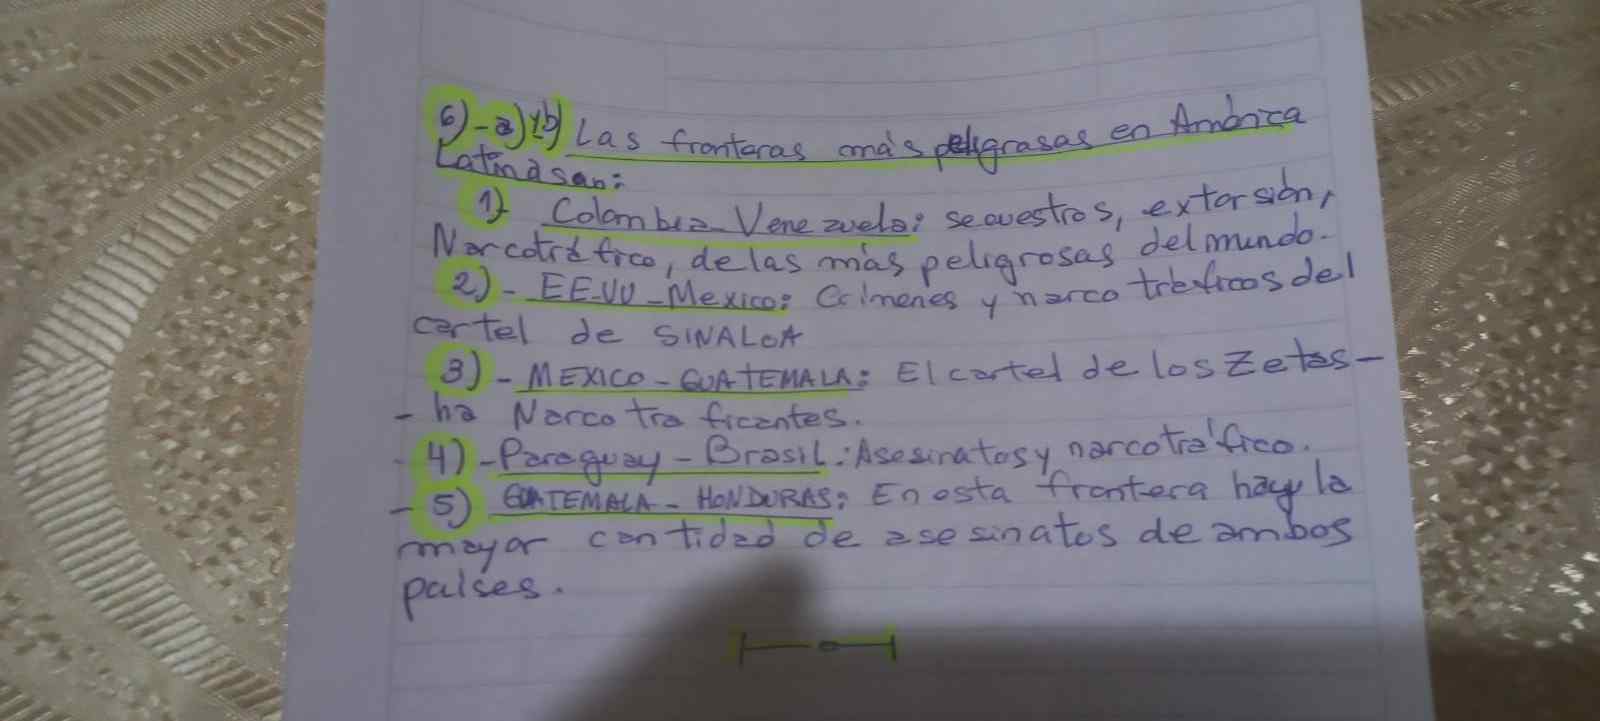 6)-a)y b) Las fronteras más peligrosas en América
Latina son:
1) Colombia-Venezuela: secuestros, extorsión,
Narcotráfico, de las más peligrosas del mundo.
2)- EE-UU-Mexico: Crímenes y narco tráficos del
cartel de SINALOA
3)-MEXICO-GUATEMALA: El cartel de los Zetas-
- ha Narco tra ficantes.
4)-Paraguay-Brasil: Asesinatos y narcotráfico.
- 5) GUATEMALA-HONDURAS: En esta frontera hay la
mayor cantidad de asesinatos de ambos
países.